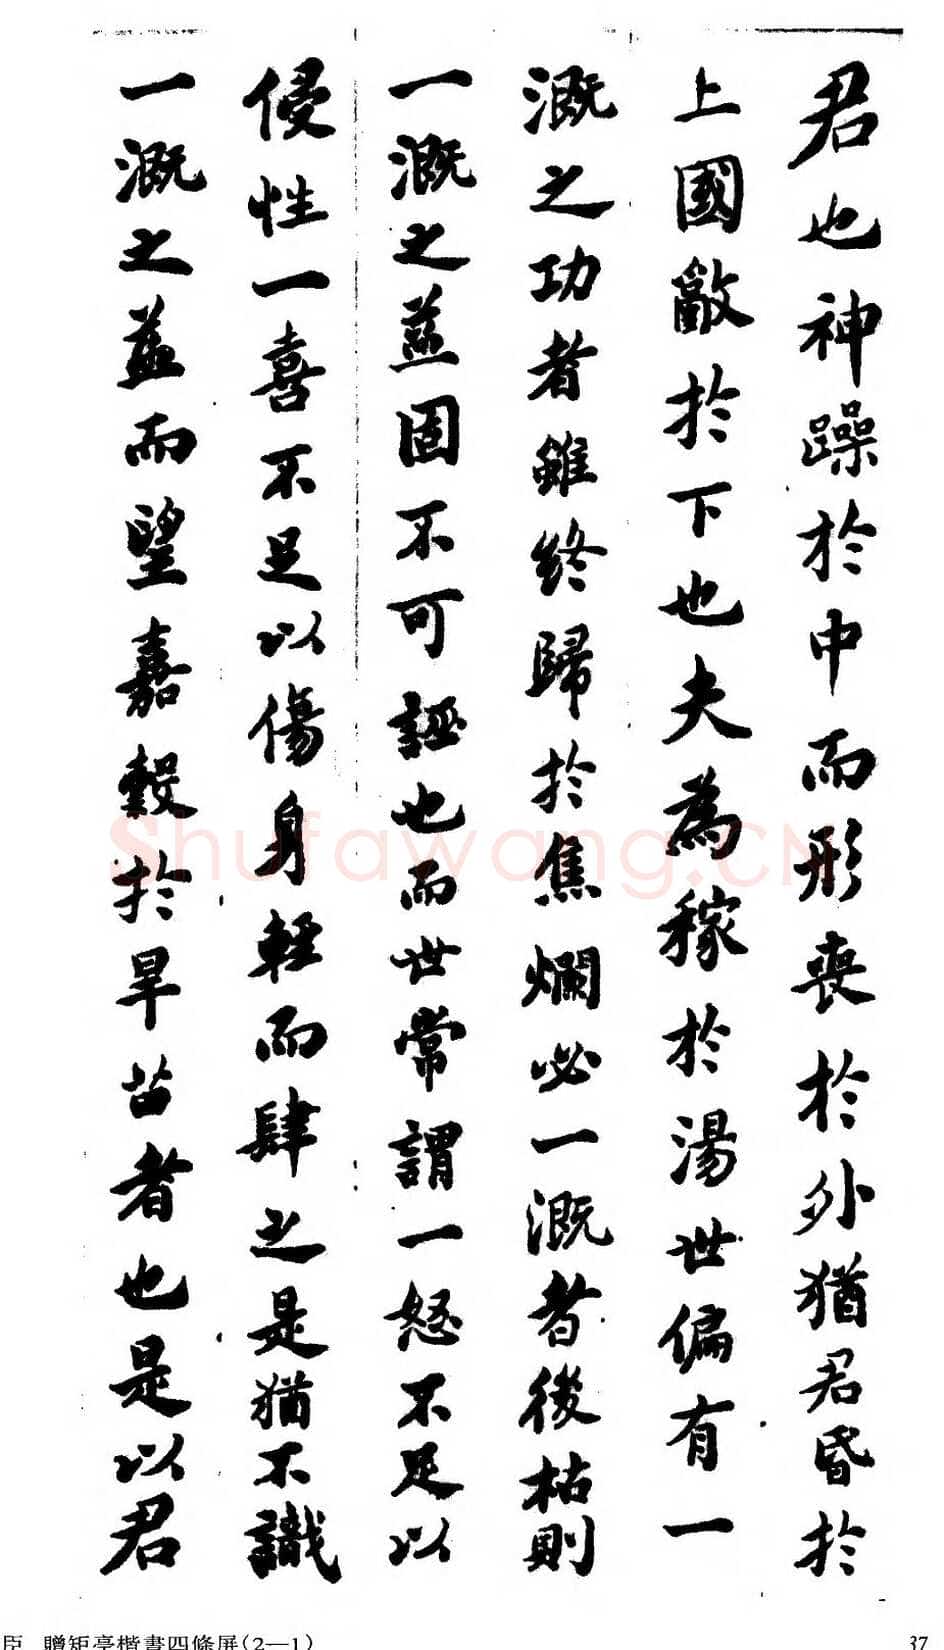 君也神躁於中而形喪於外猶君昏於
上國敵於下也夫為稼於湯世偏有一
溉之功者雖終歸於焦爛必一溉者後枯則
一溉之益固不可誣也而世常謂一怒不足以
侵性一喜不足以傷身輕而肆之是猶不識
一溉之益而望嘉穀於旱苗者也是以君
Shufawang.CN
臣 贈矩亭楷書四條屏(2—1)
37